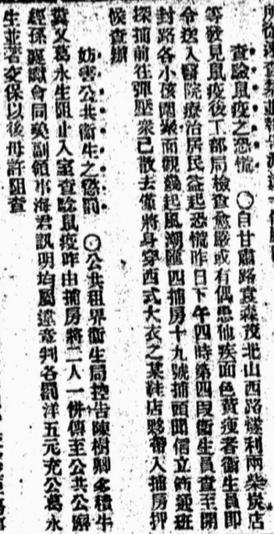 查驗鼠疫之恐慌　〇自甘肅路義森茂北山西路樣利兩柴炭店
等發見鼠疫後工部局檢查愈嚴或有偶患他疾面色黃瘦者衛生員即
令送入醫院療治居民益起恐慌昨日下午四時第四段衛生員查至開
封路各小孩閧然而觀幾起風潮匯四捕房十九號捕頭聞信立飭通班
探捕前往彈壓衆已散去僅將身穿西式大衣之某鞋店夥帶入捕房押
候查辦
妨害公共衛生之懲罰　〇公共租界衛生局控告陳樹卿多積牛
糞又葛永生阻止入室查驗鼠疫昨由捕房將二人一併傳至公共公廨
經孫讞員會同副領事海君訊明均屬違章判各罰洋五元充公葛永
生並著交保以後毋許阻查